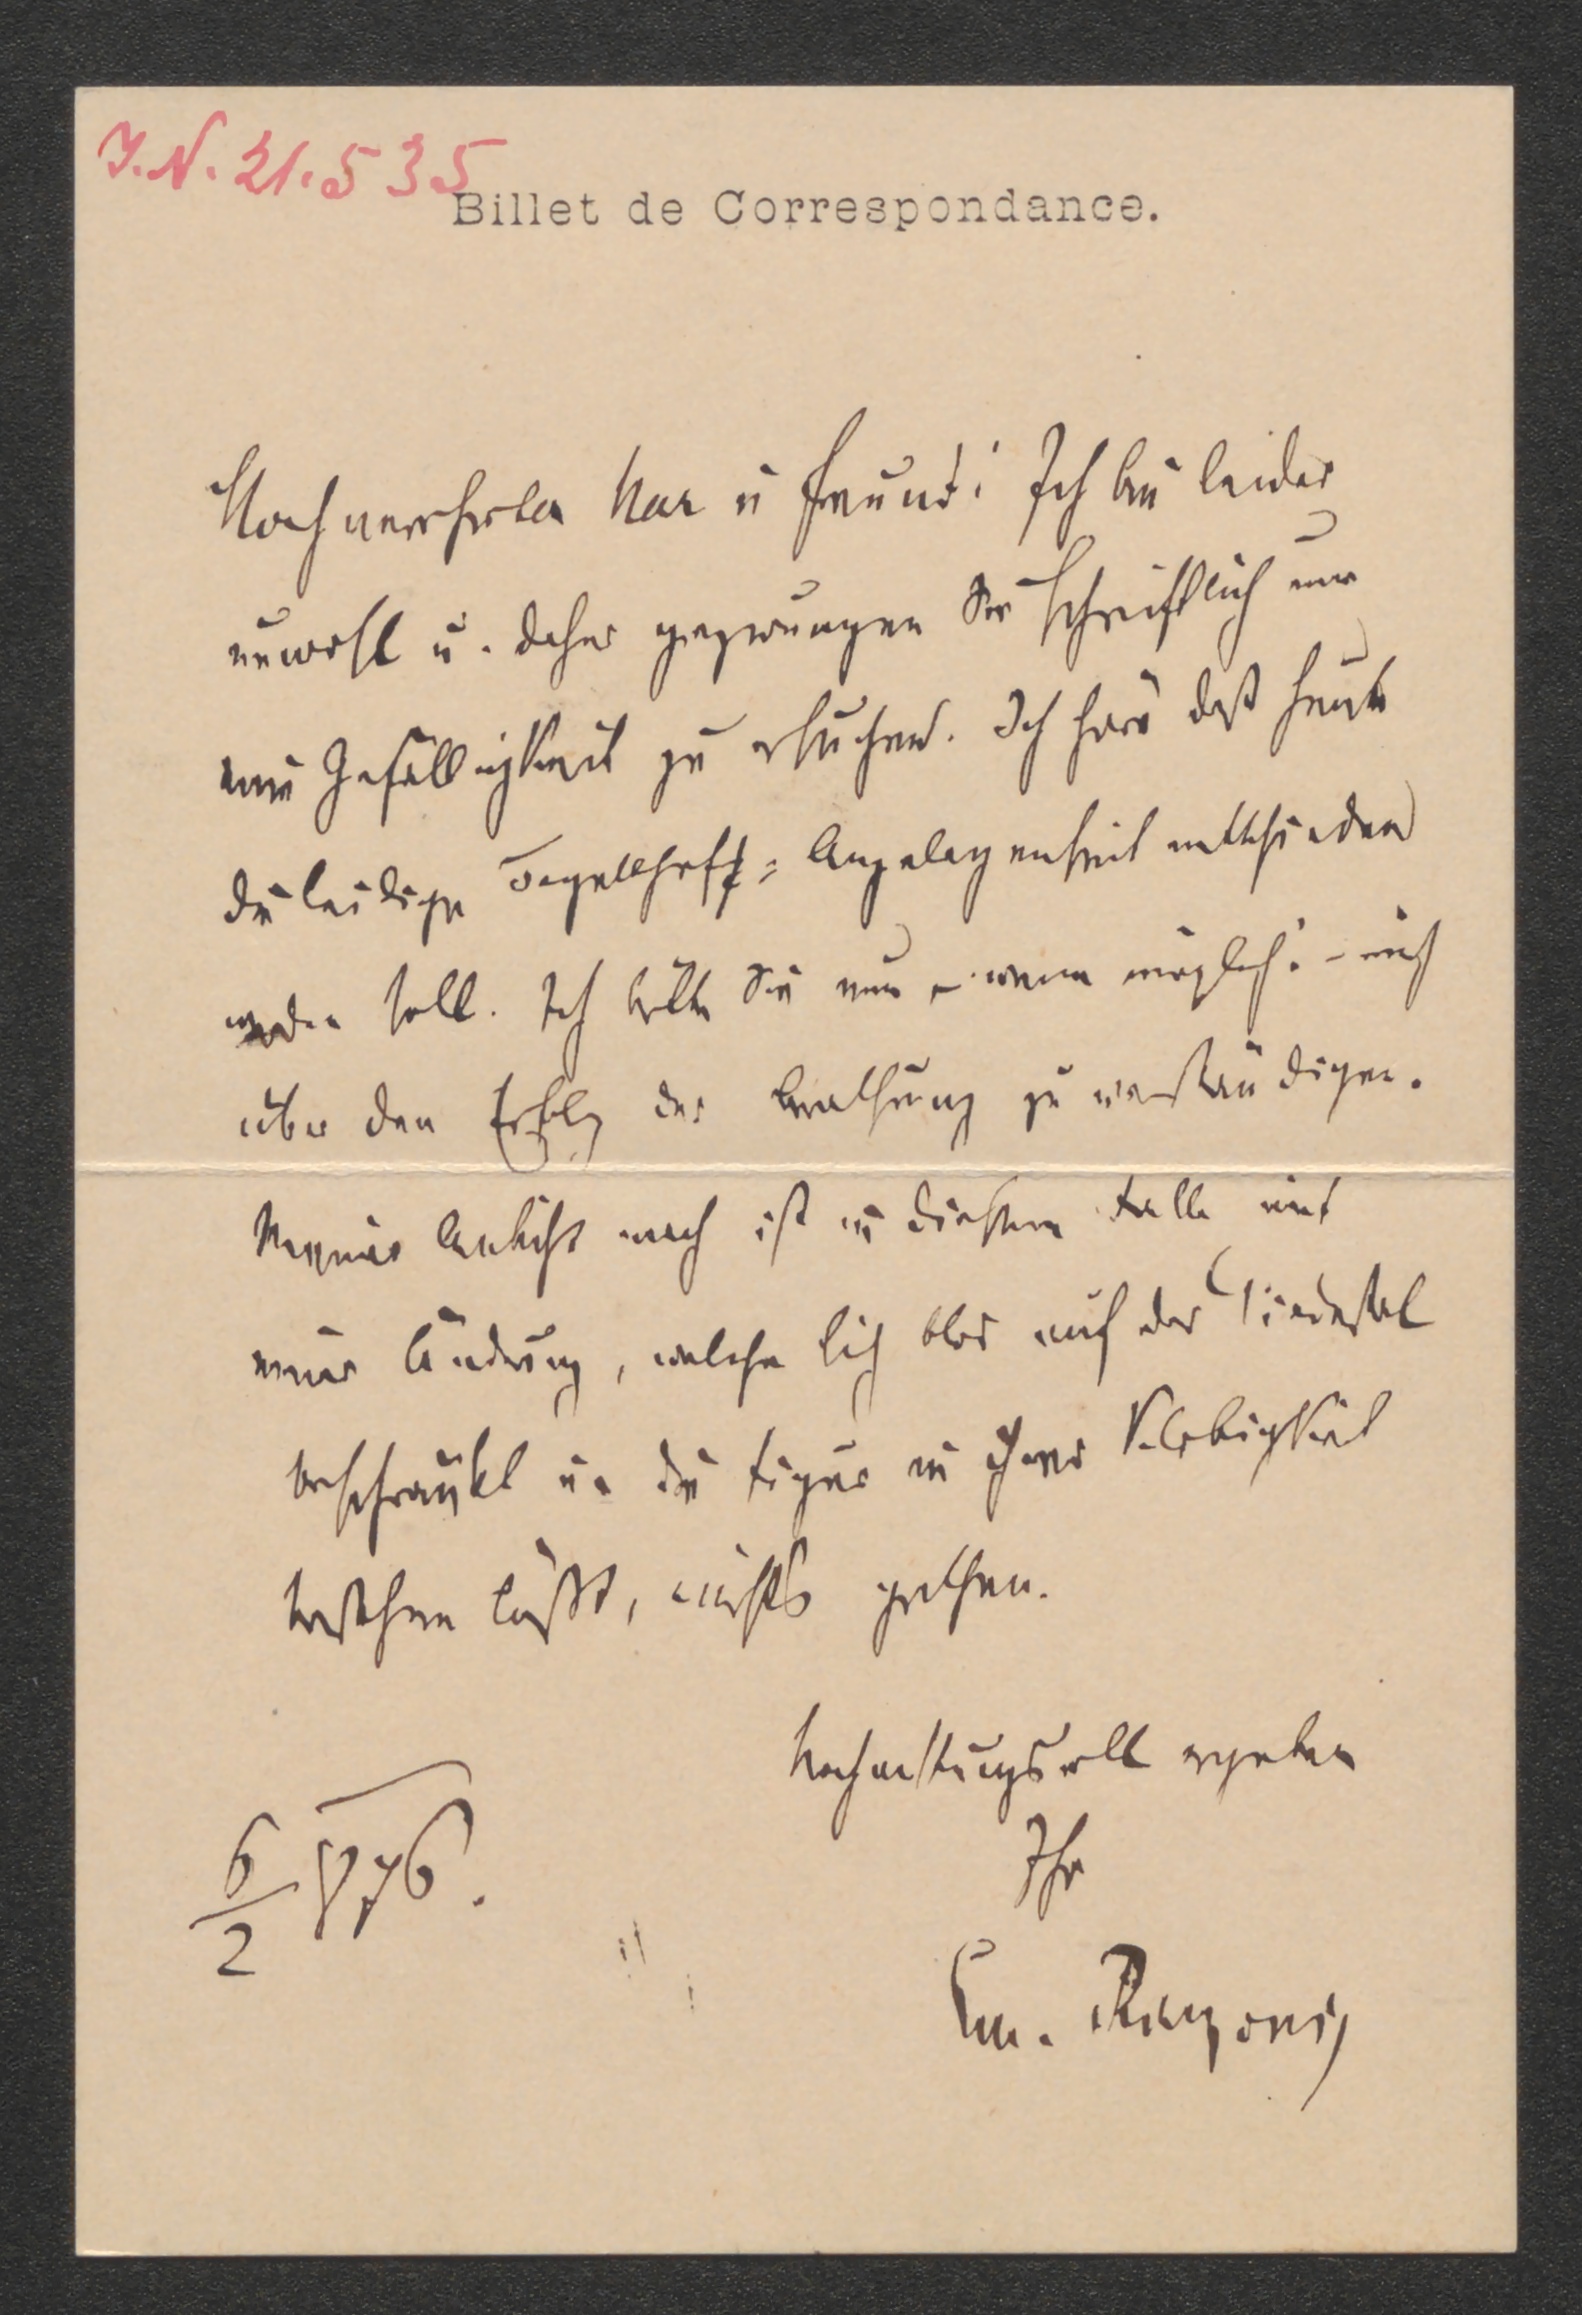 I.N. 21.535
Billet de Correspondance.
Hochverehrter Herr u Freund! Ich bin leider
unwohl u. daher gezwungen Sie schriftlich um
eine Gefälligkeit zu ersuchen. Ich höre daß heute
die leidige Tegetthoff-Angelegenheit entschieden
werden soll. Ich bitte Sie nun – wenn möglich – mich
über den Erfolg der Berathung zu verständigen.
Meiner Ansicht nach ist in diesem Falle mit
einer Änderung, welche sich blos auf das Piedestal
beschränkt u. die Figur in ihrer
bestehen läßt, nichts gethan.
Hochachtungsvoll ergeben
Ihr
6/2 876.
Em. Ranzoni